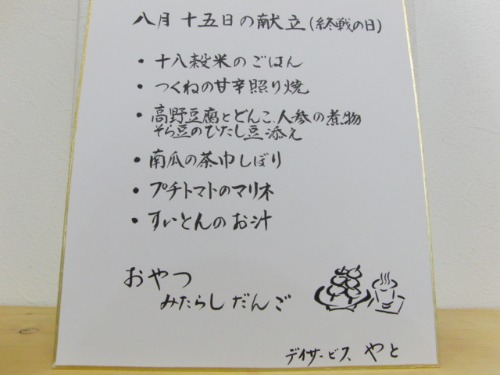 八月十五日の献立(終戦の日)
・十八穀米のごはん
・つくねの甘辛照り焼
・高野豆腐とどんこ、人参の煮物
そら豆のひたし豆添え
・南瓜の茶巾しぼり
・プチトマトのマリネ
・すいとんのお汁
おやつ
みたらしだんご
デイサービス やと